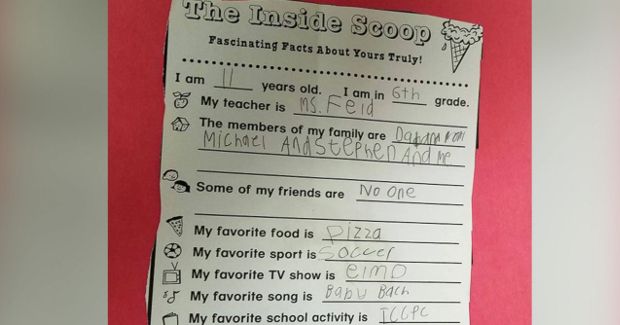 The Inside Scoop
Fascinating Facts About Yours Truly!
I am 11 years old. I am in 6th grade.
My teacher is Ms. Feid
The members of my family are
Michael And Stephen And me
Some of my friends are No One
My favorite food is pizza
My favorite sport is soccer
My favorite TV show is elmo
My favorite song is Baby Bach
My favorite school activity is